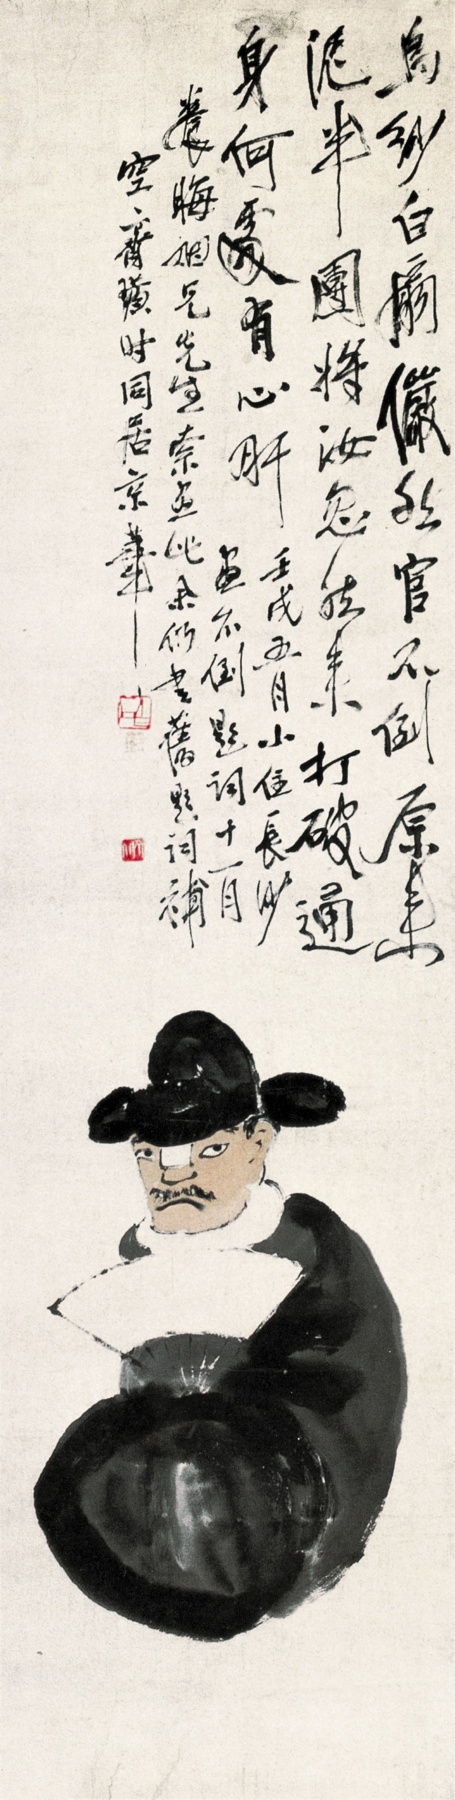 烏紗白扇儼然官不倒原来
泥半團將汝忽然来打破通
身何處有心肝
壬戌五月小住長沙
畫不倒題詞十一月
養晦姻兄先生索畫此余仍書舊題詞補
空齊璜時同居京華